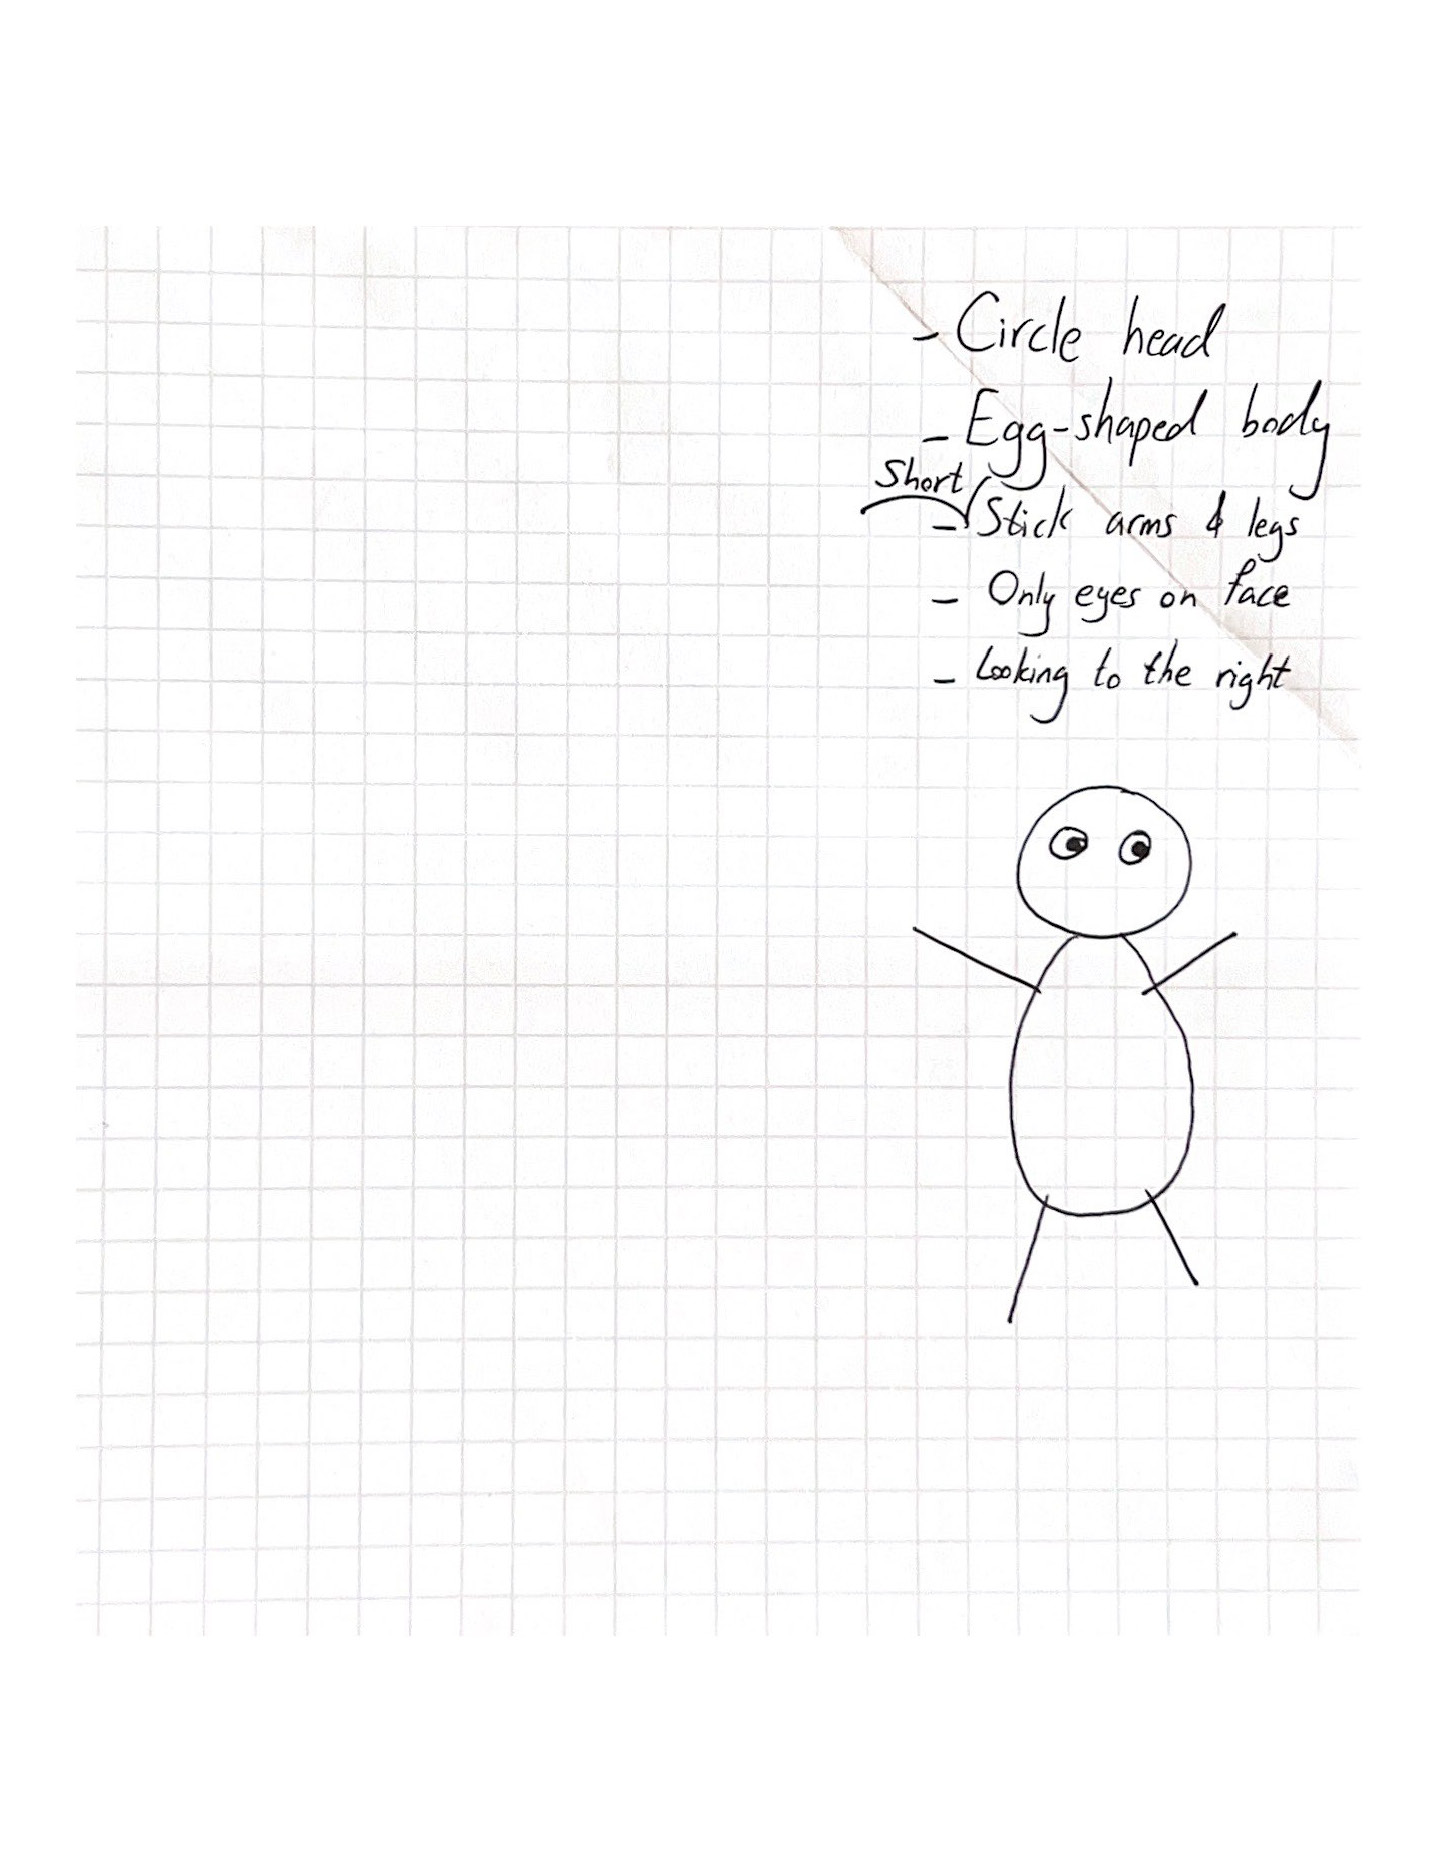 - Circle head
- Egg-shaped body
Short
- Stick arms & legs
- Only eyes on face
- Looking to the right